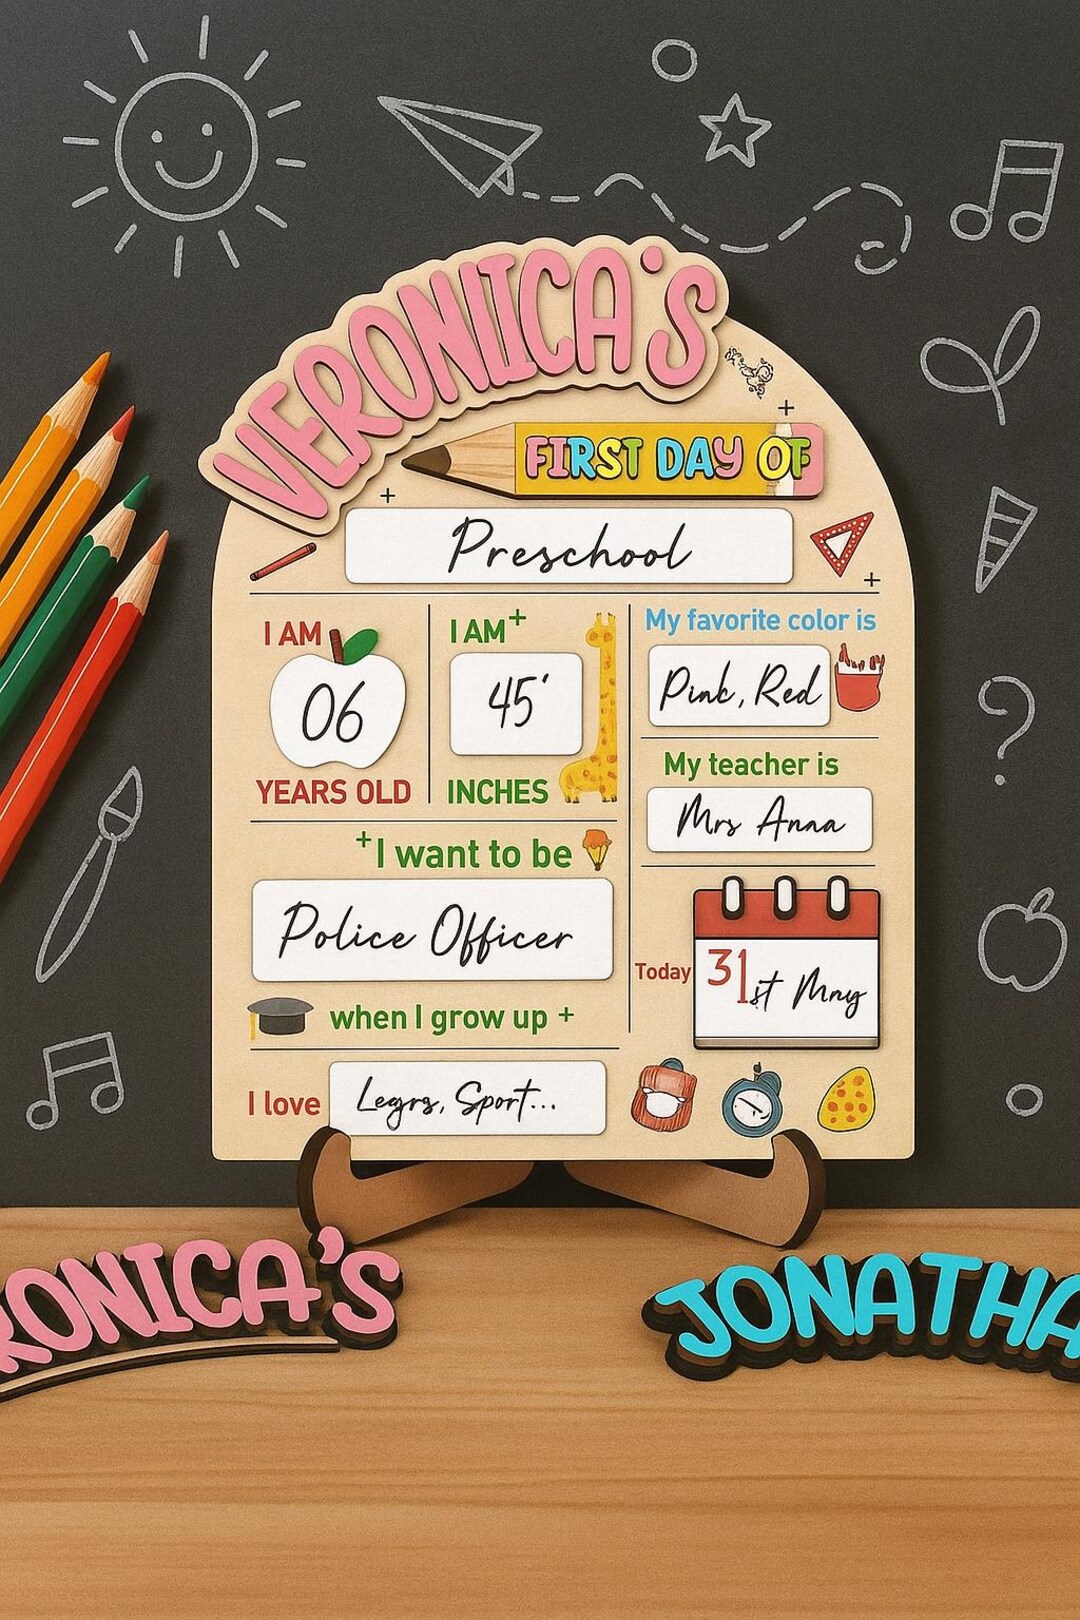 VERONICA'S
FIRST DAY OF
Preschool
I AM
06
YEARS OLD
I AM
45'
INCHES
My favorite color is
Pink, Red
My teacher is
Mrs Anna
I want to be
Police Officer
when I grow up
Today
31st May
I love
Legrs, Sport...
RONICA'S
JONATHA